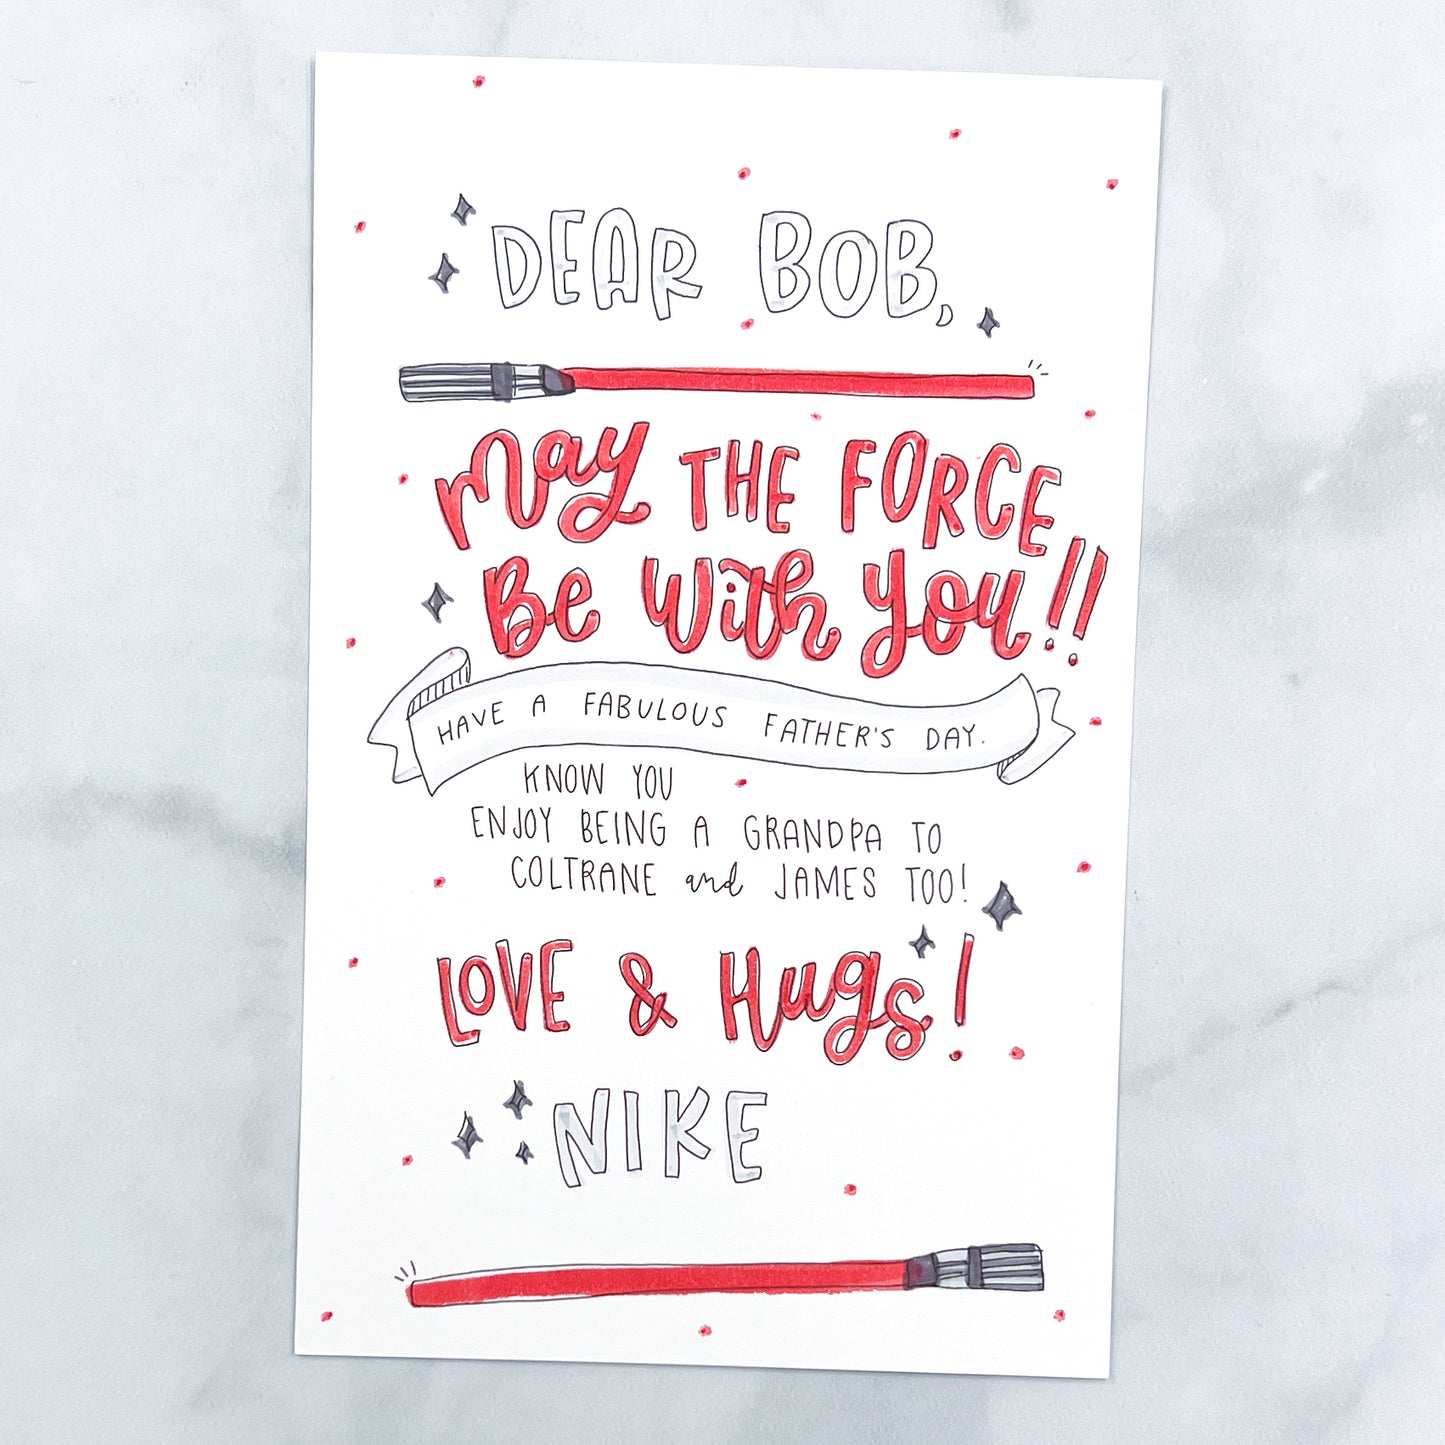 DEAR BOB,
May THE FORCE
Be With You!!
HAVE A FABULOUS FATHER'S DAY.
KNOW YOU
ENJOY BEING A GRANDPA TO
COLTRANE and JAMES TOO!
LOVE & Hugs!
NIKE